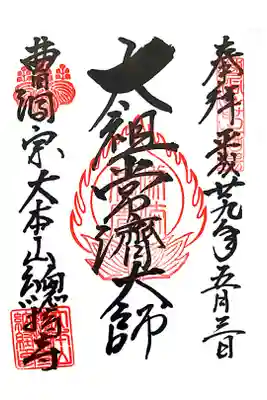 奉拝 平成廿九年五月三日
太祖常濟大師
曹洞宗大本山總持寺